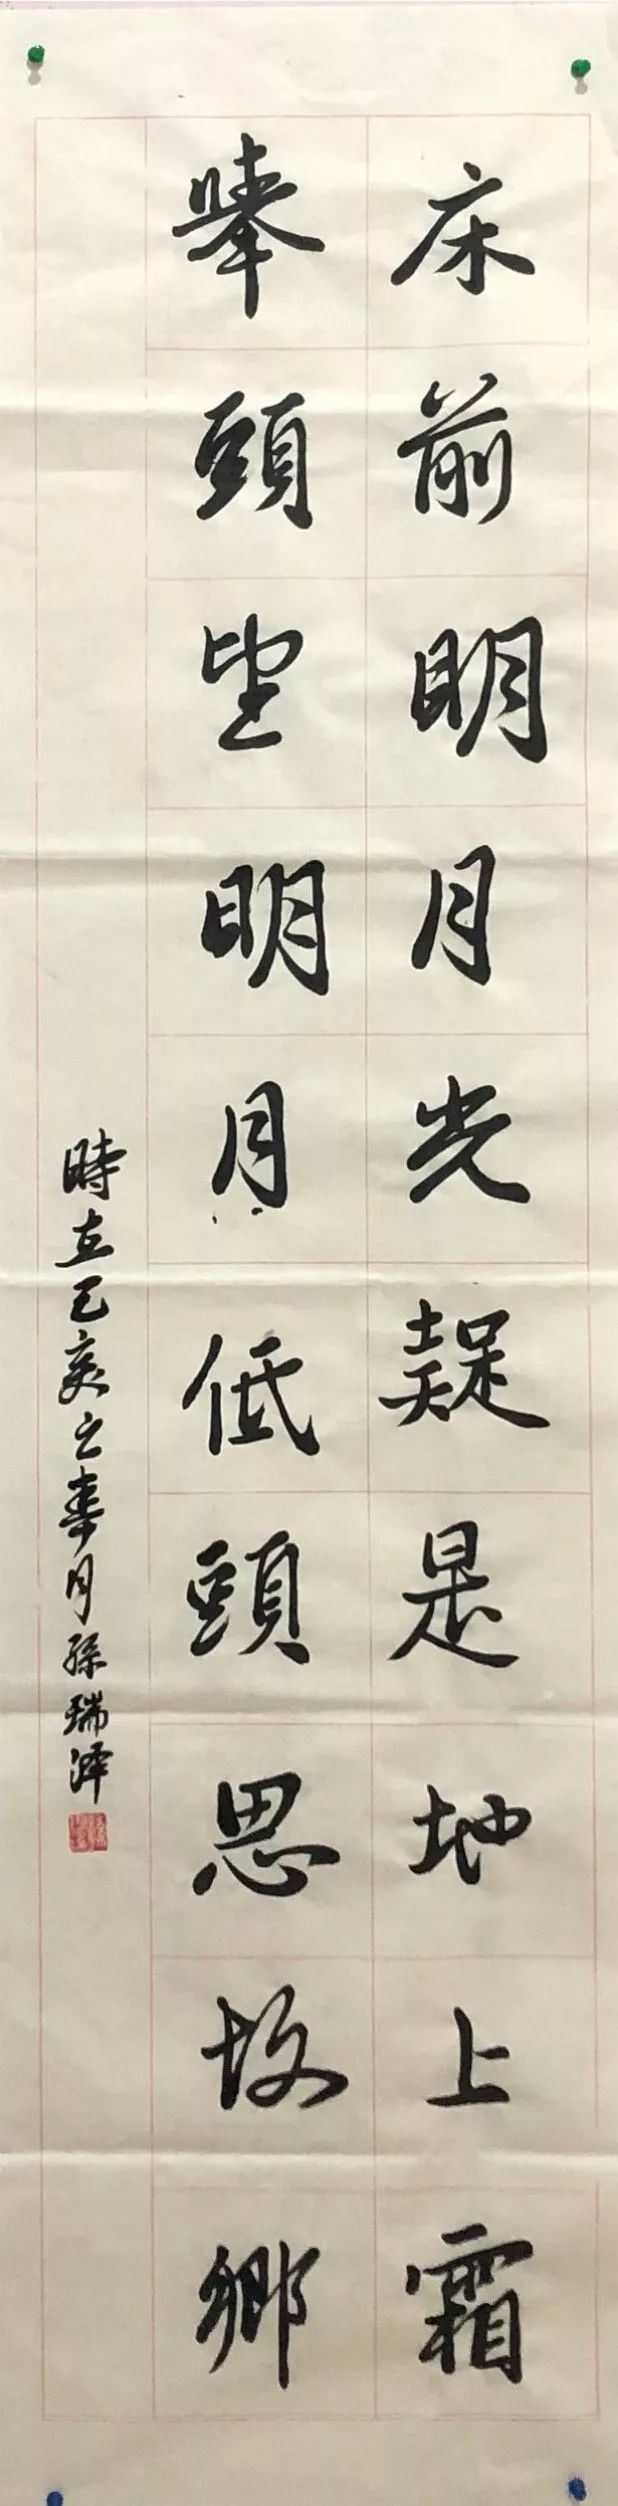 床前明月光疑是地上霜
舉頭望明月低頭思故鄉
時在己亥之春月孫瑞澤